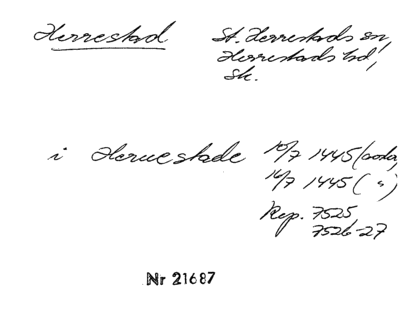 Herrestad St. Herrestads sn,
Herrestads hd,
Sk.
i Heruestade 10/7 1445 (soda,
16/7 1445 ( " )
Rep. 7525,
7526-27
Nr 21687